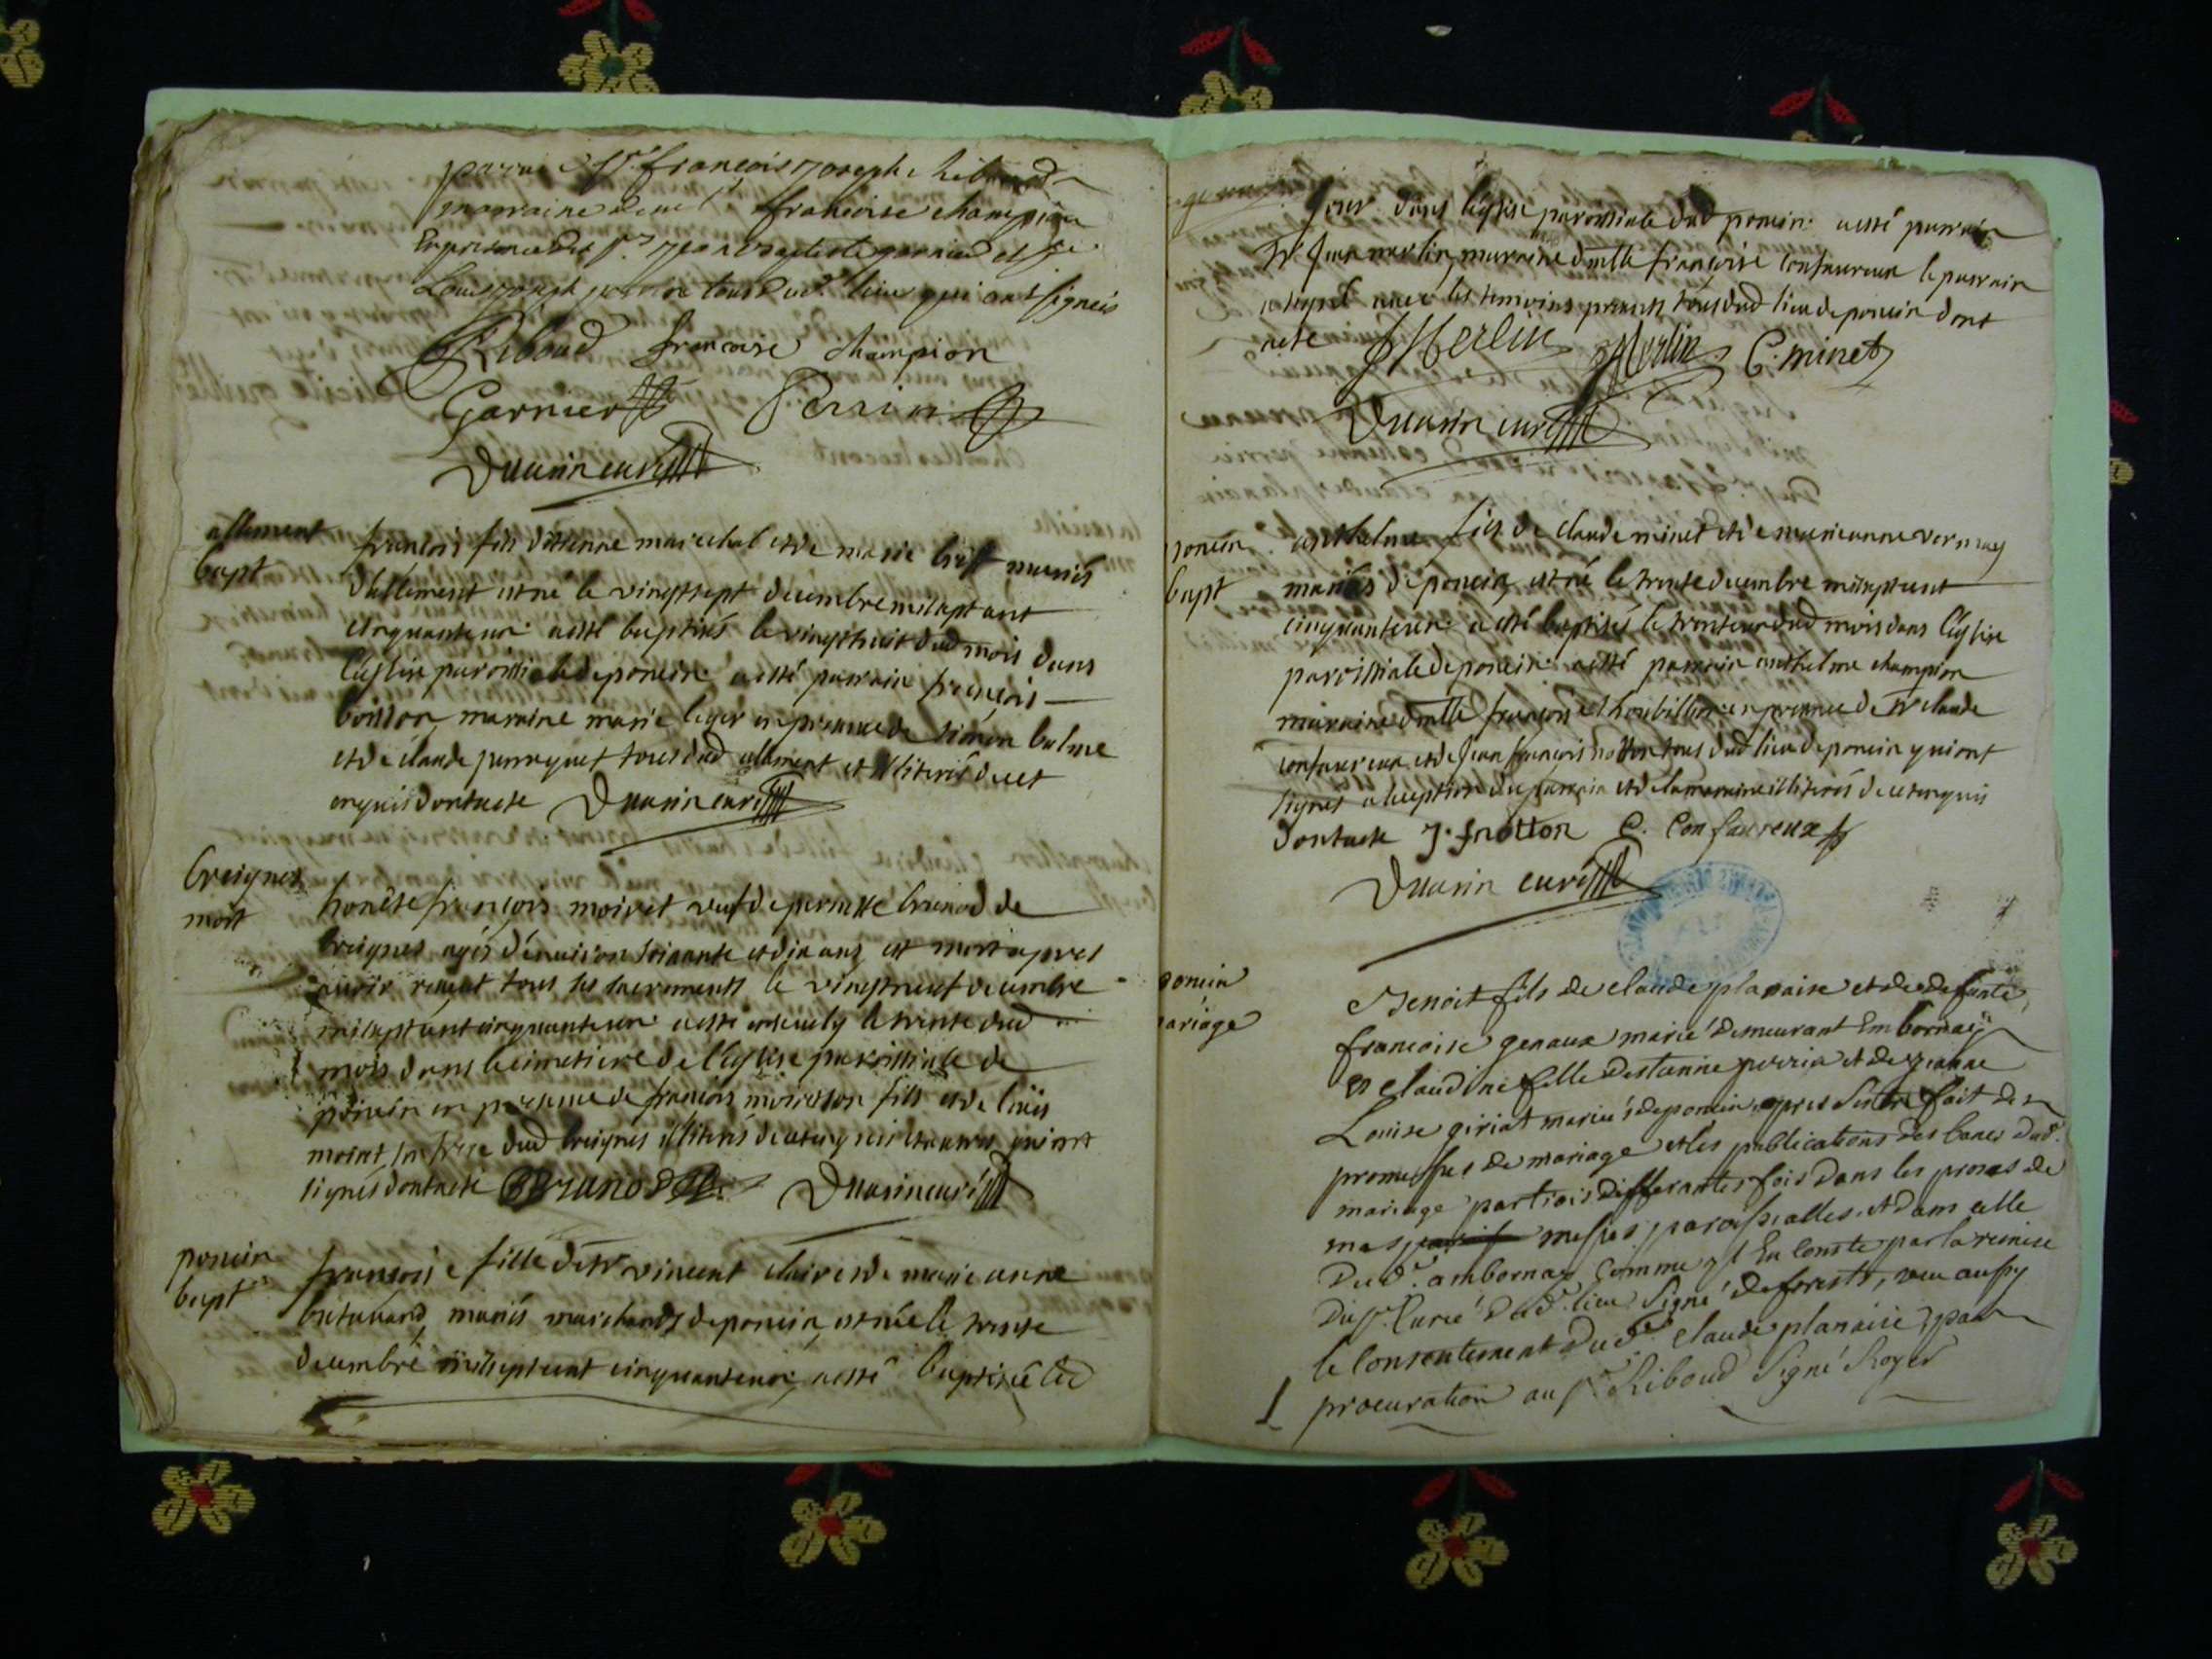 parrain Sr. francois joseph Riboud
marraine françoise champion
En presence des Srs jean baptiste garnier et Sr
Louis joseph perrin tous dud. lieu qui ont signéis
Riboud francoise champion
Garnier Perrin
Duuarin curé
allement
bapt
françois fils d'étienne marechal et de marie mariés
d'allement est né le vingtsept decembre milsept cent
cinquanteun a esté baptisés le vingthuit dud mois dans
l'eglise paroissiale de poncin a esté parrain françois
boisson, maraine marie leger en presence de simon balme
et de claude perraquet tous dud allement et illiterés de cet
enquis dont acte Duuarin curé
breignes
mort
honête françois moiret veuf de pernette brunod de
breignes agés d'enuiron soixante et dix ans est mort apres
auoir receut tous les sacrements le vingtneuf decembre
milseptcent cinquanteun a esté enseuely le trente dud
mois dans le cimetiere de l'eglise paroissiale de
poncin en presence de françois fils et de
moiret, son frere dud breignes illiterés de ce enquis qui ont
signés dont acte Brunod Duuarin curé
poncin
bapt
françoise fille de Sr vincent claire et de marie anne
mariés marchands de poncin, est née le trente
decembre milseptcent cinquanteun, a esté baptisée led
jour dans l'eglise paroissiale dud poncin a esté parrain
Sr Jean merlin, marraine dmlle françoise confaureux le parrain
a signé auec les temoins presents tous dud lieu de poncin dont
acte JMerlin Merlin C. minet
Duuarin curé
poncin
bapt
anthelme fils de claude minet et de marieanne
mariés de poncin, est né le trente decembre milseptcent
cinquanteun a esté baptisés le trenteun dud mois dans l'eglise
paroissiale de poncin a esté parrain anthelme champion
maraine dmlle françoise en presence de Sr claude
confaureux et de Jean françois notton tous dud lieu de poncin qui ont
signés a l'exeption du parrain et de la marraine illiterés de ce enquis
dont acte J. f notton C. Confaureux
Duuarin curé
poncin
mariage
Benoit fils de claude planaise et de defunte
francoise genaux marié demeurant Embornay
Et claudine fille destienne perrin et de jeanne
Louise giriat mariés de poncin, apres
promesses de mariage et les publications des bancs dud.
mariage par trois differantes fois dans les prones de
mes messes paroissialles, et dans celle
Dud. ambornay comme yl En Conste par la remise
Du Sr. Curé Dud. lieu Signé deforests, veu aussy
le Consentement Dud. claude planaise par
procuration au Sr. Riboud Signé Roger